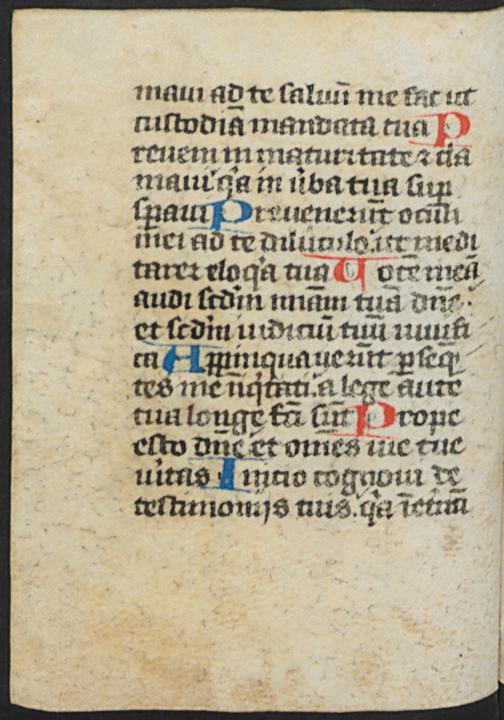 maui ad te saluū me fac ut
custodiā mandata tua P
reueni in maturitate ⁊ cla
maui q̄a in ūba tua sup̄
sp̄aui P reuenerūt oculi
mei ad te diluculo ut medi
tarer eloq̄a tua U ocē meā
audi scdm̄ miām tuā dn̄e
et scdm̄ iudiciū tuū uiuifi
ca A ppinquauerūt ꝑseq̄
tes me iniq̄tati a lege aute
tua longe fc̄i sūt P rope
esto dn̄e et om̄es uie tue
ueritas I nitio cognoui de
testimonijs tuis q̄a ī etnū